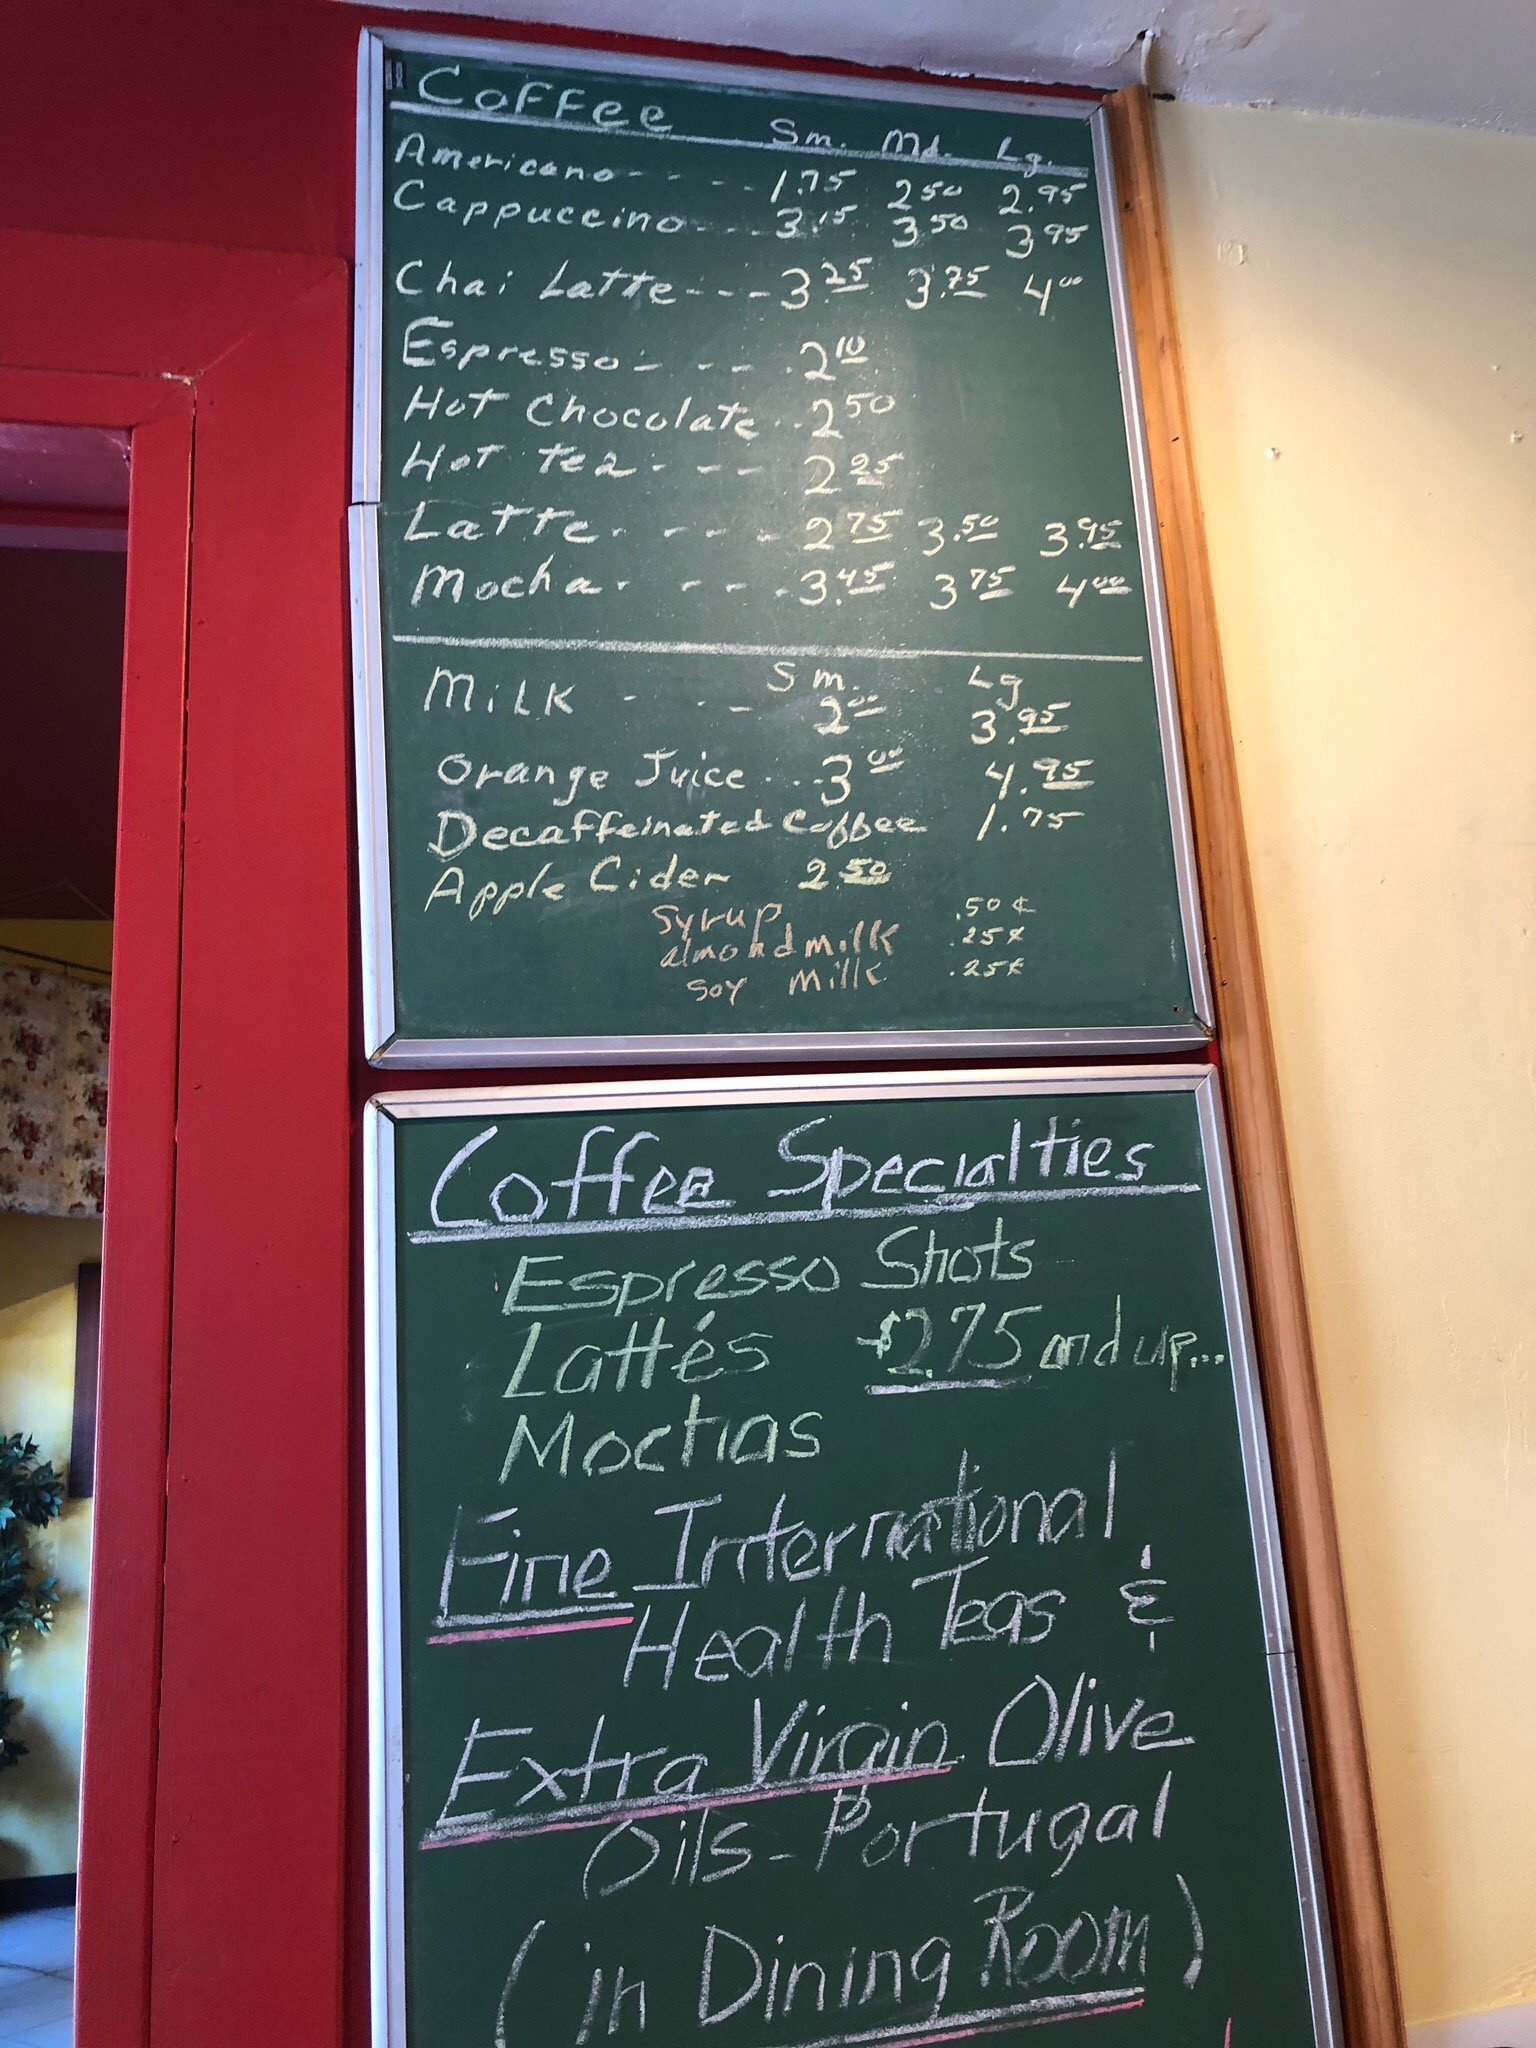 Coffee Sm. Md. Lg.
Americano - - - - - 1.75 2 50 2.95
Cappuccino - - - - 3.15 3 50 3 95
Chai Latte - - - 3.25 3.75 4 00
Espresso - - - - - . 2 10
Hot Chocolate . . 2 50
Hot tea - - - - 2 25
Latte . - - - - 2 75 3.50 3.95
Mocha . - - - . 3.45 3 75 4 00
Sm. Lg
Milk - - - 2 00 3.95
Orange Juice . . . 3 00 4.95
Decaffeinated Coffee 1.75
Apple Cider 2.50
Syrup .50¢
almond milk .25¢
soy milk .25¢
Coffee Specialties
Espresso Shots
Lattés $2.75 and up...
Mochas
Fine International
Health Teas &
Extra Virgin Olive
Oils - Portugal
(in Dining Room)